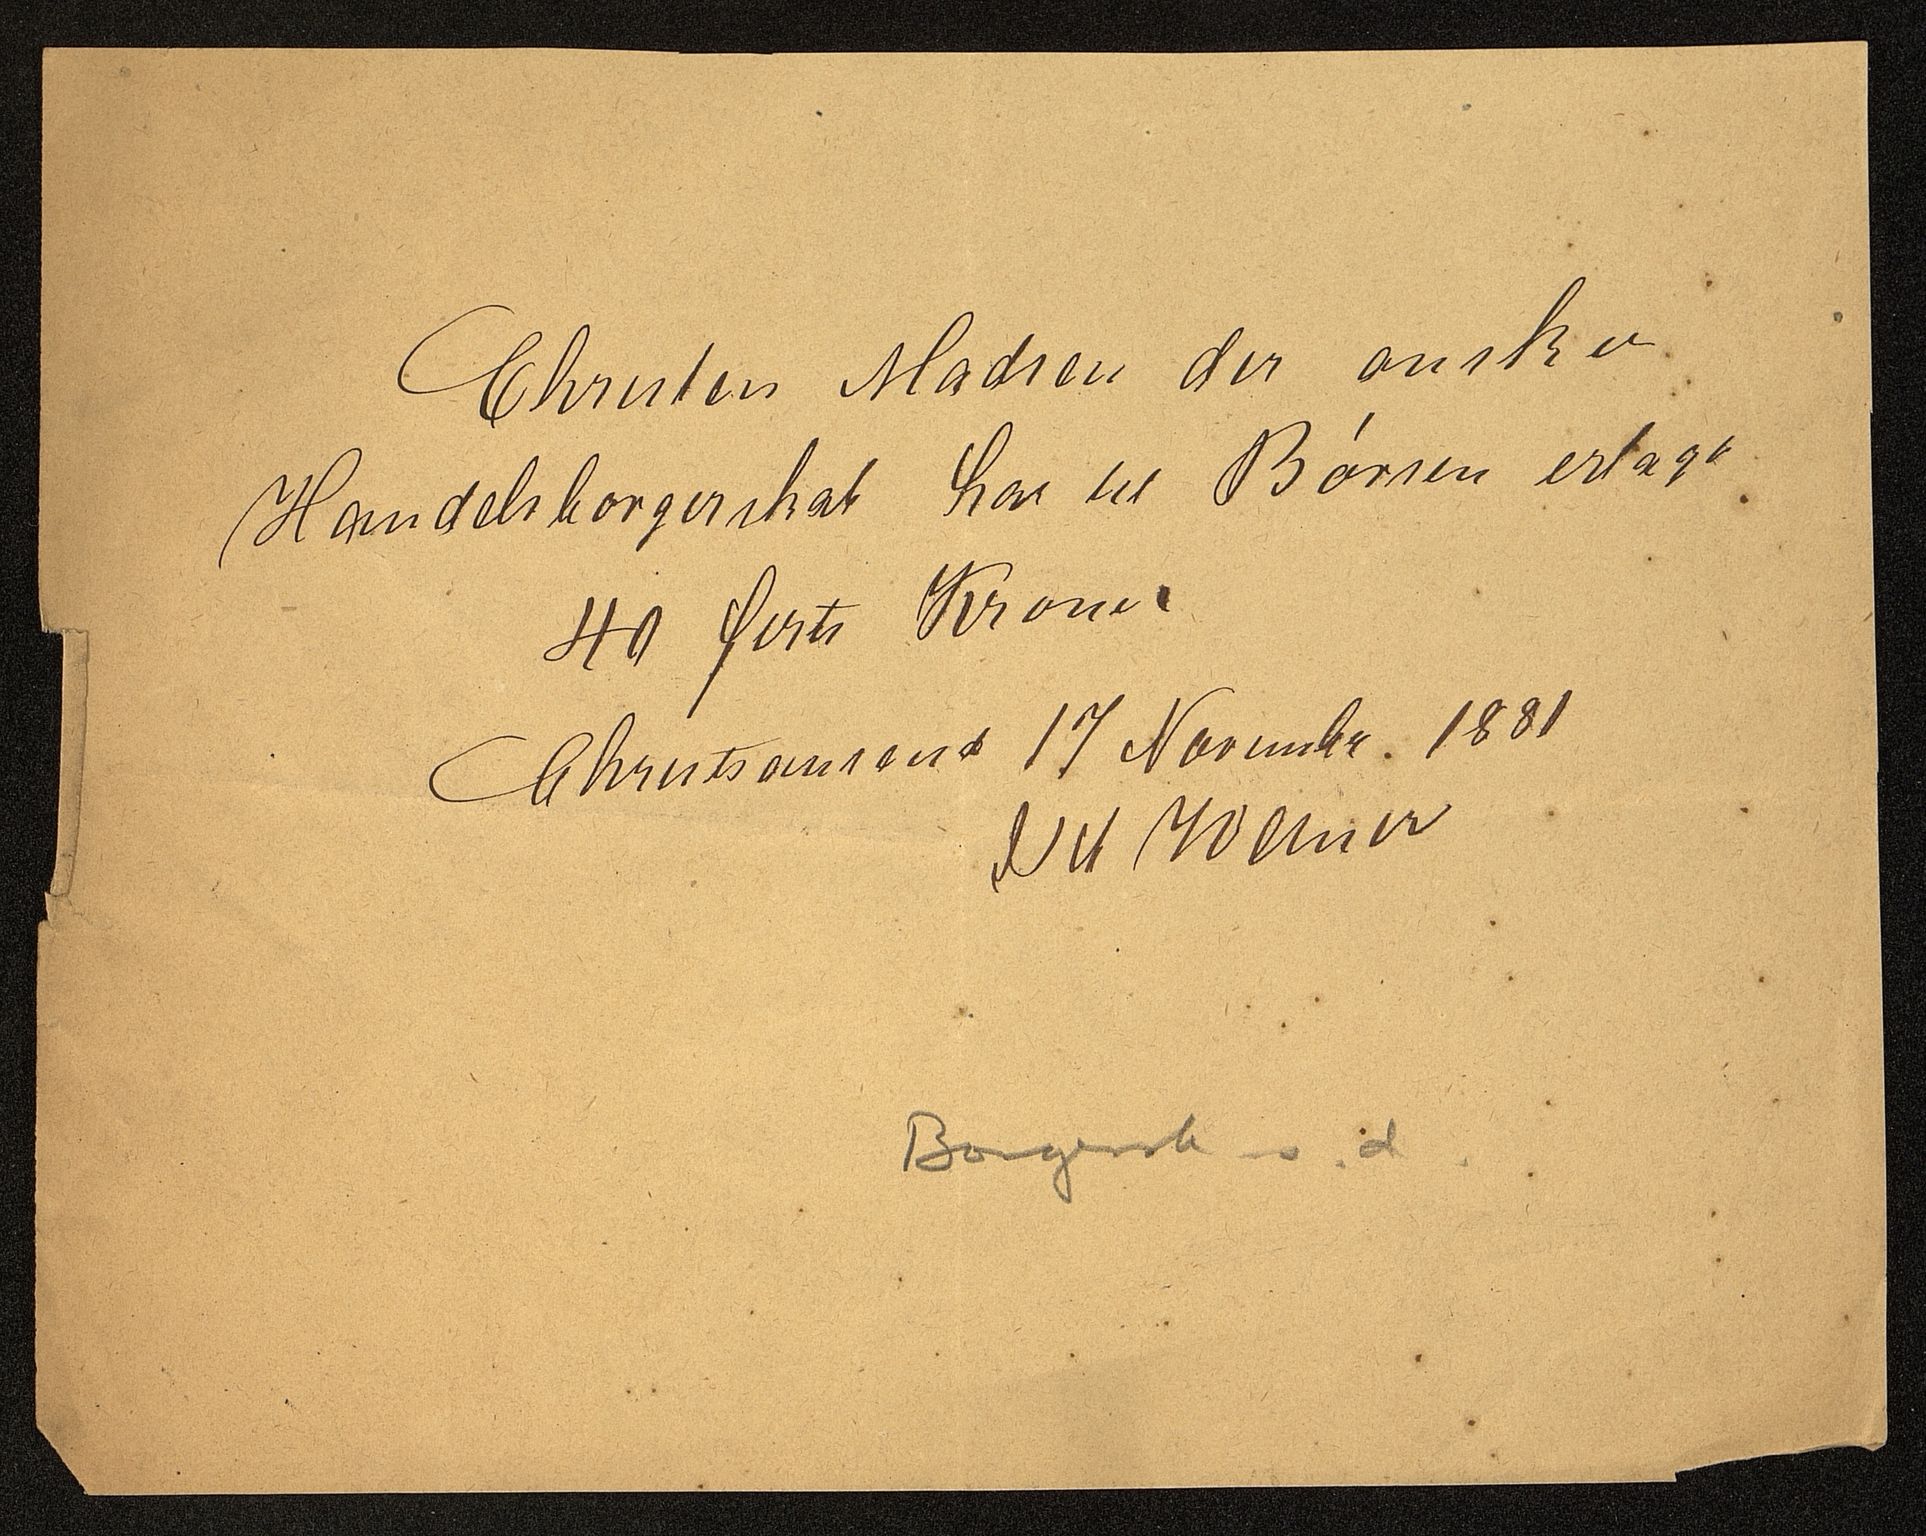 Christen Madsen der ønsker
Handelsborgerskab har til Børsen erlagt
40 førti Kroner
Christiansand 17 November. 1881
Werner
Borgersk